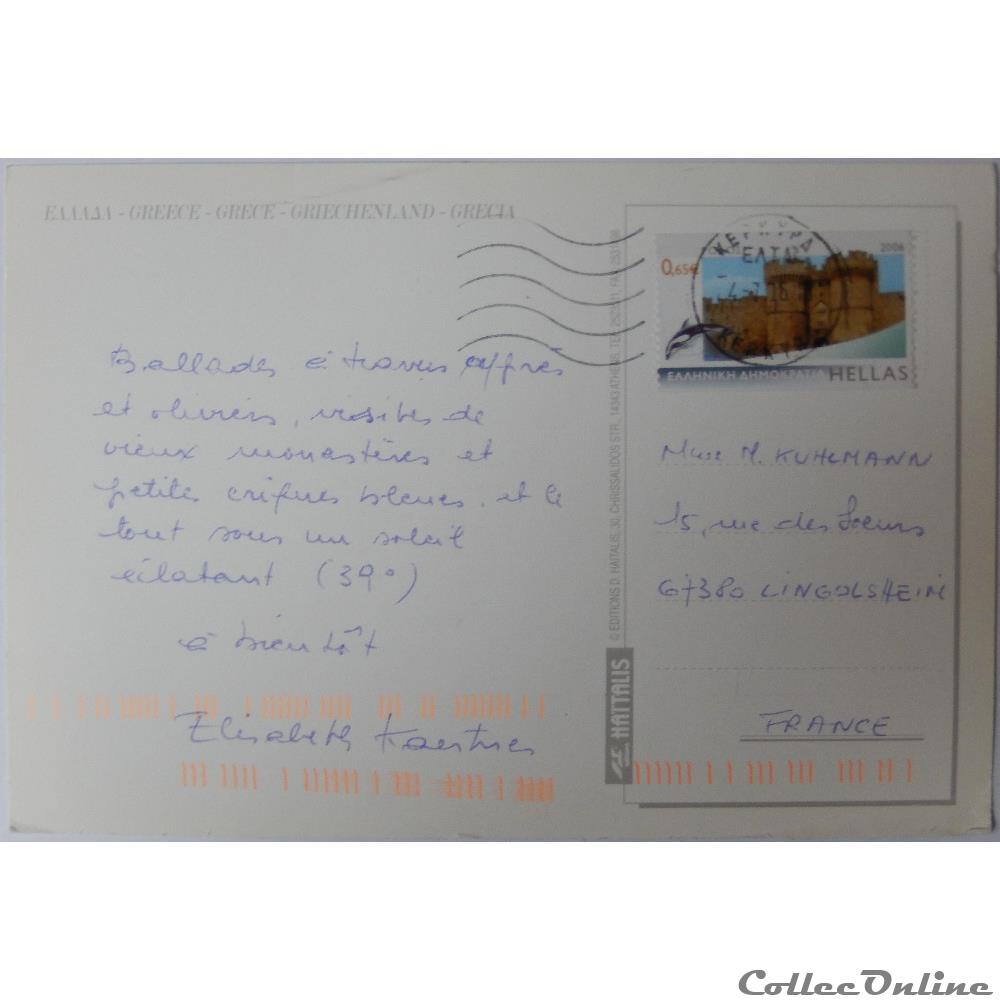 ΕΛΛΑΔΑ - GREECE - GRECE - GRIECHENLAND - GRECIA
Ballades à travers cyprès
et oliviers, visites de
vieux monastères et
petites criques bleues. et le
tout sous un soleil
éclatant (39°)
à bientôt
Elisabeth
© EDITIONS D. HAITALIS, 30, CHRISSALIDOS STR., 14343 ATHENS
HAITALIS
0,65€
2006
ΕΛΛΗΝΙΚΗ ΔΗΜΟΚΡΑΤΙΑ HELLAS
ΚΕΡΚΥΡΑ
ΕΛΤΑ
Mme M. KUHLMANN
15, rue des Soeurs
67380 LINGOLSHEIM
FRANCE
CollecOnline